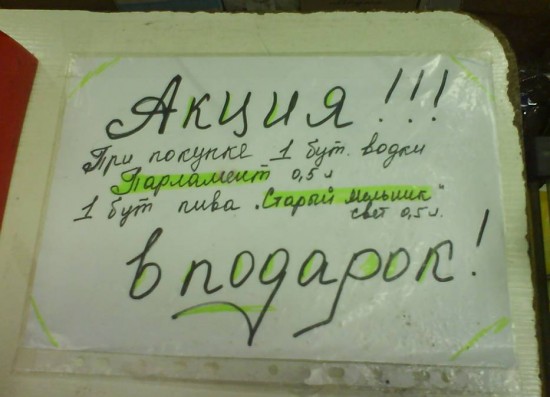 Акция!!!
При покупке 1 бут. водки
Парламент 0,5 л
1 бут пива „Старый мельник"
свет 0,5 л.
в подарок!